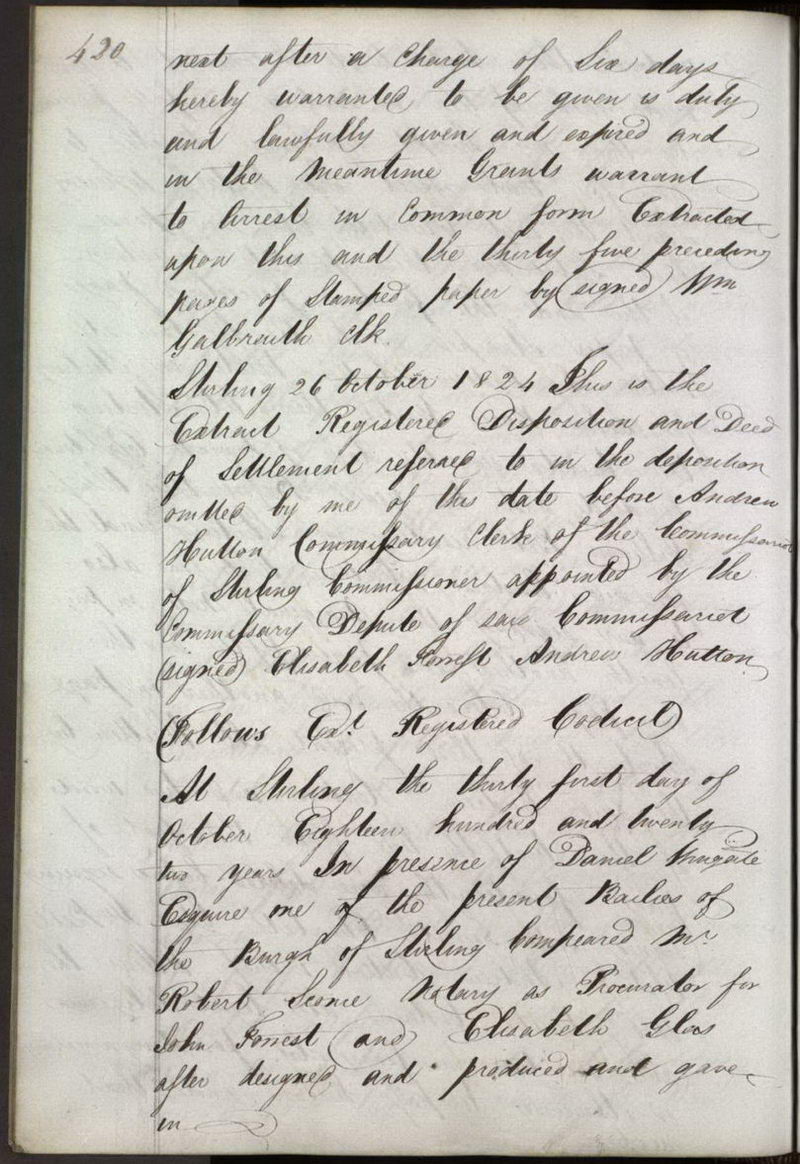 420
next after a Charge of Six days
hereby warranted to be given is duly
and lawfully given and expired and
in the Meantime Grants warrant
to Arrest in Common form Extracted
upon this and the thirty five preceding
pages of Stamped paper by (signed) Wm
Galbreath Clk.
Stirling 26 October 1824 This is the
Extract Registered Disposition and Deed
of Settlement referred to in the deposition
omitted by me of this date before Andrew
Hutton Commissary Clerk of the Commissariot
of Stirling Commissioner appointed by the
Commissary Depute of said Commissariot
(signed) Elisabeth Forrest Andrew Hutton
(Follows Ext. Registered Codicil)
At Stirling the thirty first day of
October Eighteen hundred and twenty
two years In presence of Daniel
Esquire one of the present Bailies of
the Burgh of Stirling Compeared Mr.
Robert Sconce Notary as Procurator for
John Forrest (and) Elisabeth Glas
after designed and produced and gave
in